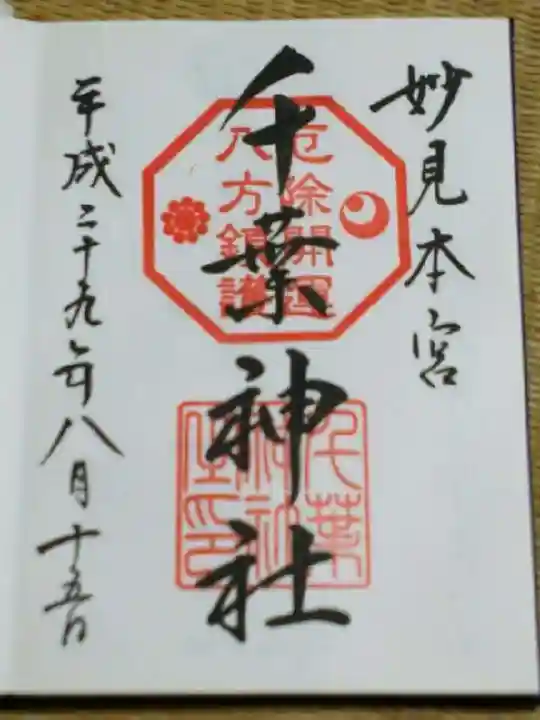 妙見本宮
厄除開運
八方鎮護
千葉神社
千葉
神社
平成二十九年八月十五日